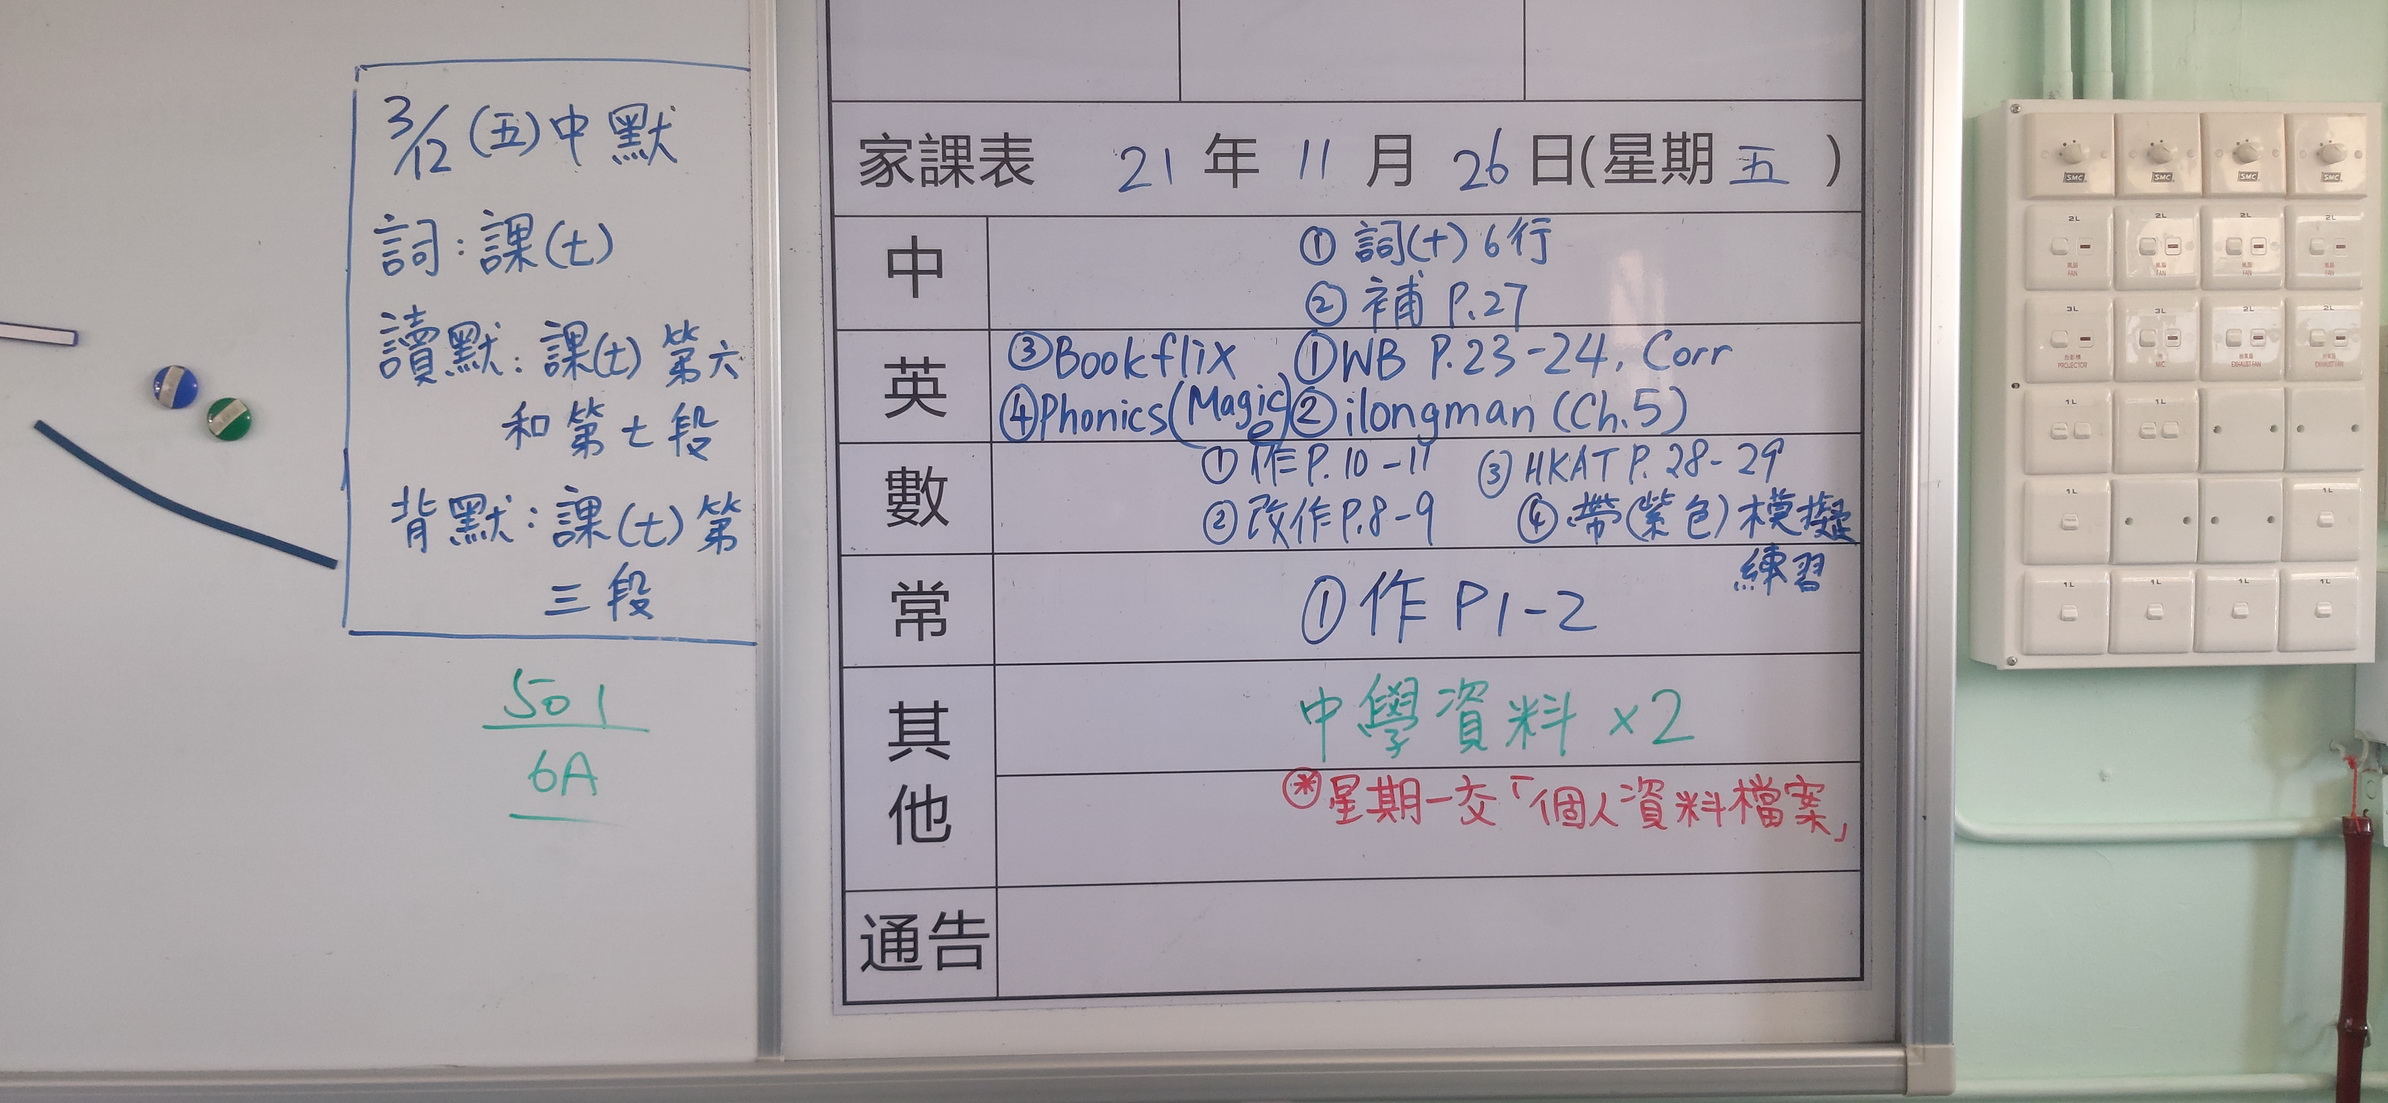 3/12 (五) 中默
詞：課(七)
讀默：課(七) 第六
和第七段
背默：課(七) 第
三段
501
6A
家課表 21 年 11 月 26 日(星期五)
中
① 詞(十) 6行
② 補 P.27
英
③Bookflix ①WB P.23-24, Corr
④Phonics(Magic) ②ilongman (Ch.5)
數
①作P.10-11 ③HKAT P.28-29
②改作P.8-9 ④帶(紫色)模擬
練習
常
①作 P1-2
其他
中學資料 x2
*星期一交「個人資料檔案」
通告
SMC SMC SMC SMC
2L 2L 2L 2L
FAN FAN FAN FAN
3L 3L 2L 2L
PROJECTOR MIC EXHAUST FAN EXHAUST FAN
1L 1L
1L 1L
1L 1L 1L 1L